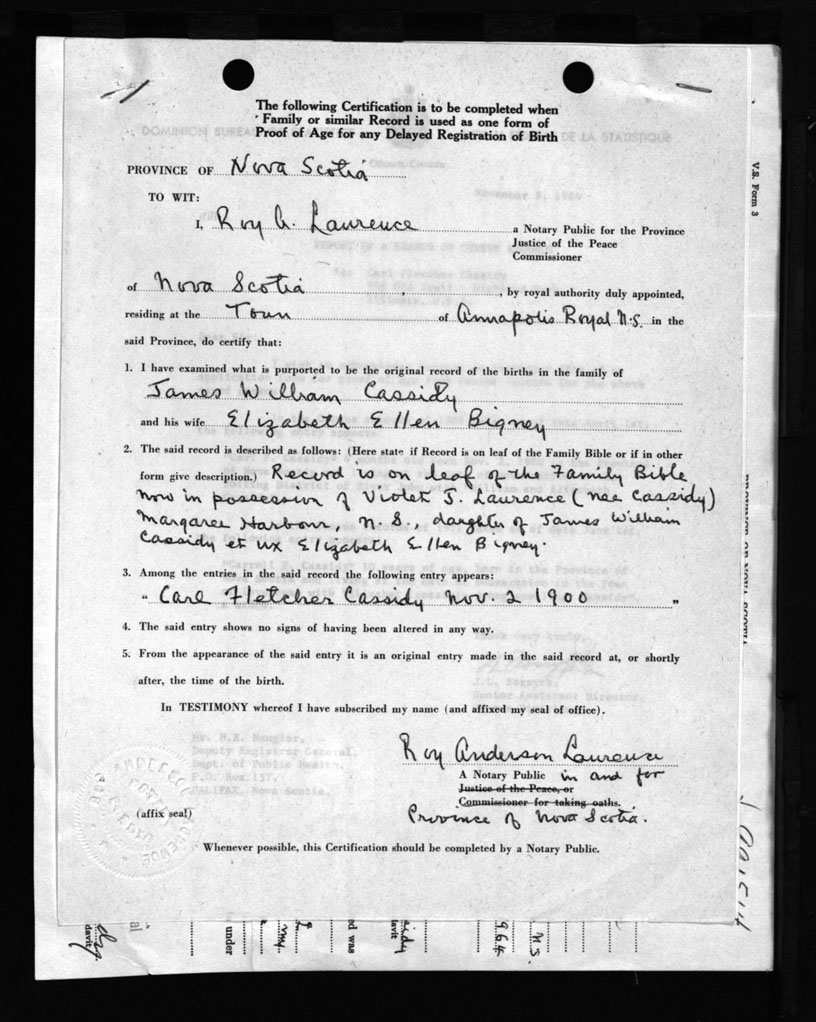 The following Certification is to be completed when
Family or similar Record is used as one form of
Proof of Age for any Delayed Registration of Birth
PROVINCE OF Nova Scotia
TO WIT:
I, Roy A. Laurence a Notary Public for the Province
Justice of the Peace
Commissioner
of Nova Scotia, by royal authority duly appointed,
residing at the Town of Annapolis Royal N.S. in the
said Province, do certify that:
1. I have examined what is purported to be the original record of the births in the family of
James William Cassidy
and his wife Elizabeth Ellen Bigney
2. The said record is described as follows: (Here state if Record is on leaf of the Family Bible or if in other
form give description.) Record is on leaf of the Family Bible
now in possession of Violet J. Laurence (nee Cassidy)
Margaree Harbour, N.S., daughter of James William
Cassidy et ux Elizabeth Ellen Bigney.
3. Among the entries in the said record the following entry appears:
" Carl Fletcher Cassidy Nov. 2 1900 "
4. The said entry shows no signs of having been altered in any way.
5. From the appearance of the said entry it is an original entry made in the said record at, or shortly
after, the time of the birth.
In TESTIMONY whereof I have subscribed my name (and affixed my seal of office).
Roy Anderson Laurence
A Notary Public in and for
Justice of the Peace, or
Commissioner for taking oaths.
Province of Nova Scotia.
(affix seal)
Whenever possible, this Certification should be completed by a Notary Public.
V.S. Form 3
davit
under
ed was
964
N.S.